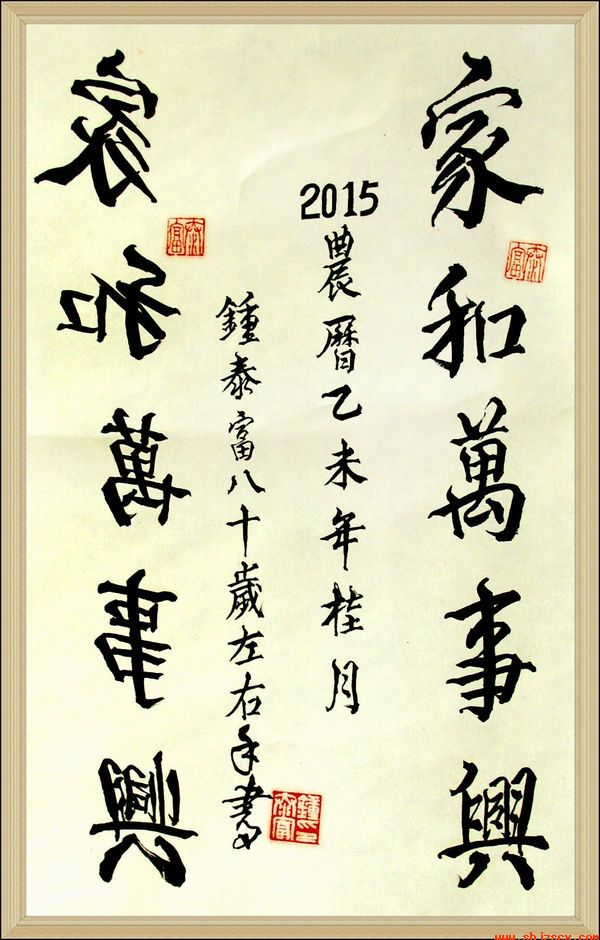 家和萬事興
2015
農曆乙未年桂月
鍾泰富八十歲左右手書
家和萬事興
泰富
泰富
鍾泰富印
www.sbjzscx.com